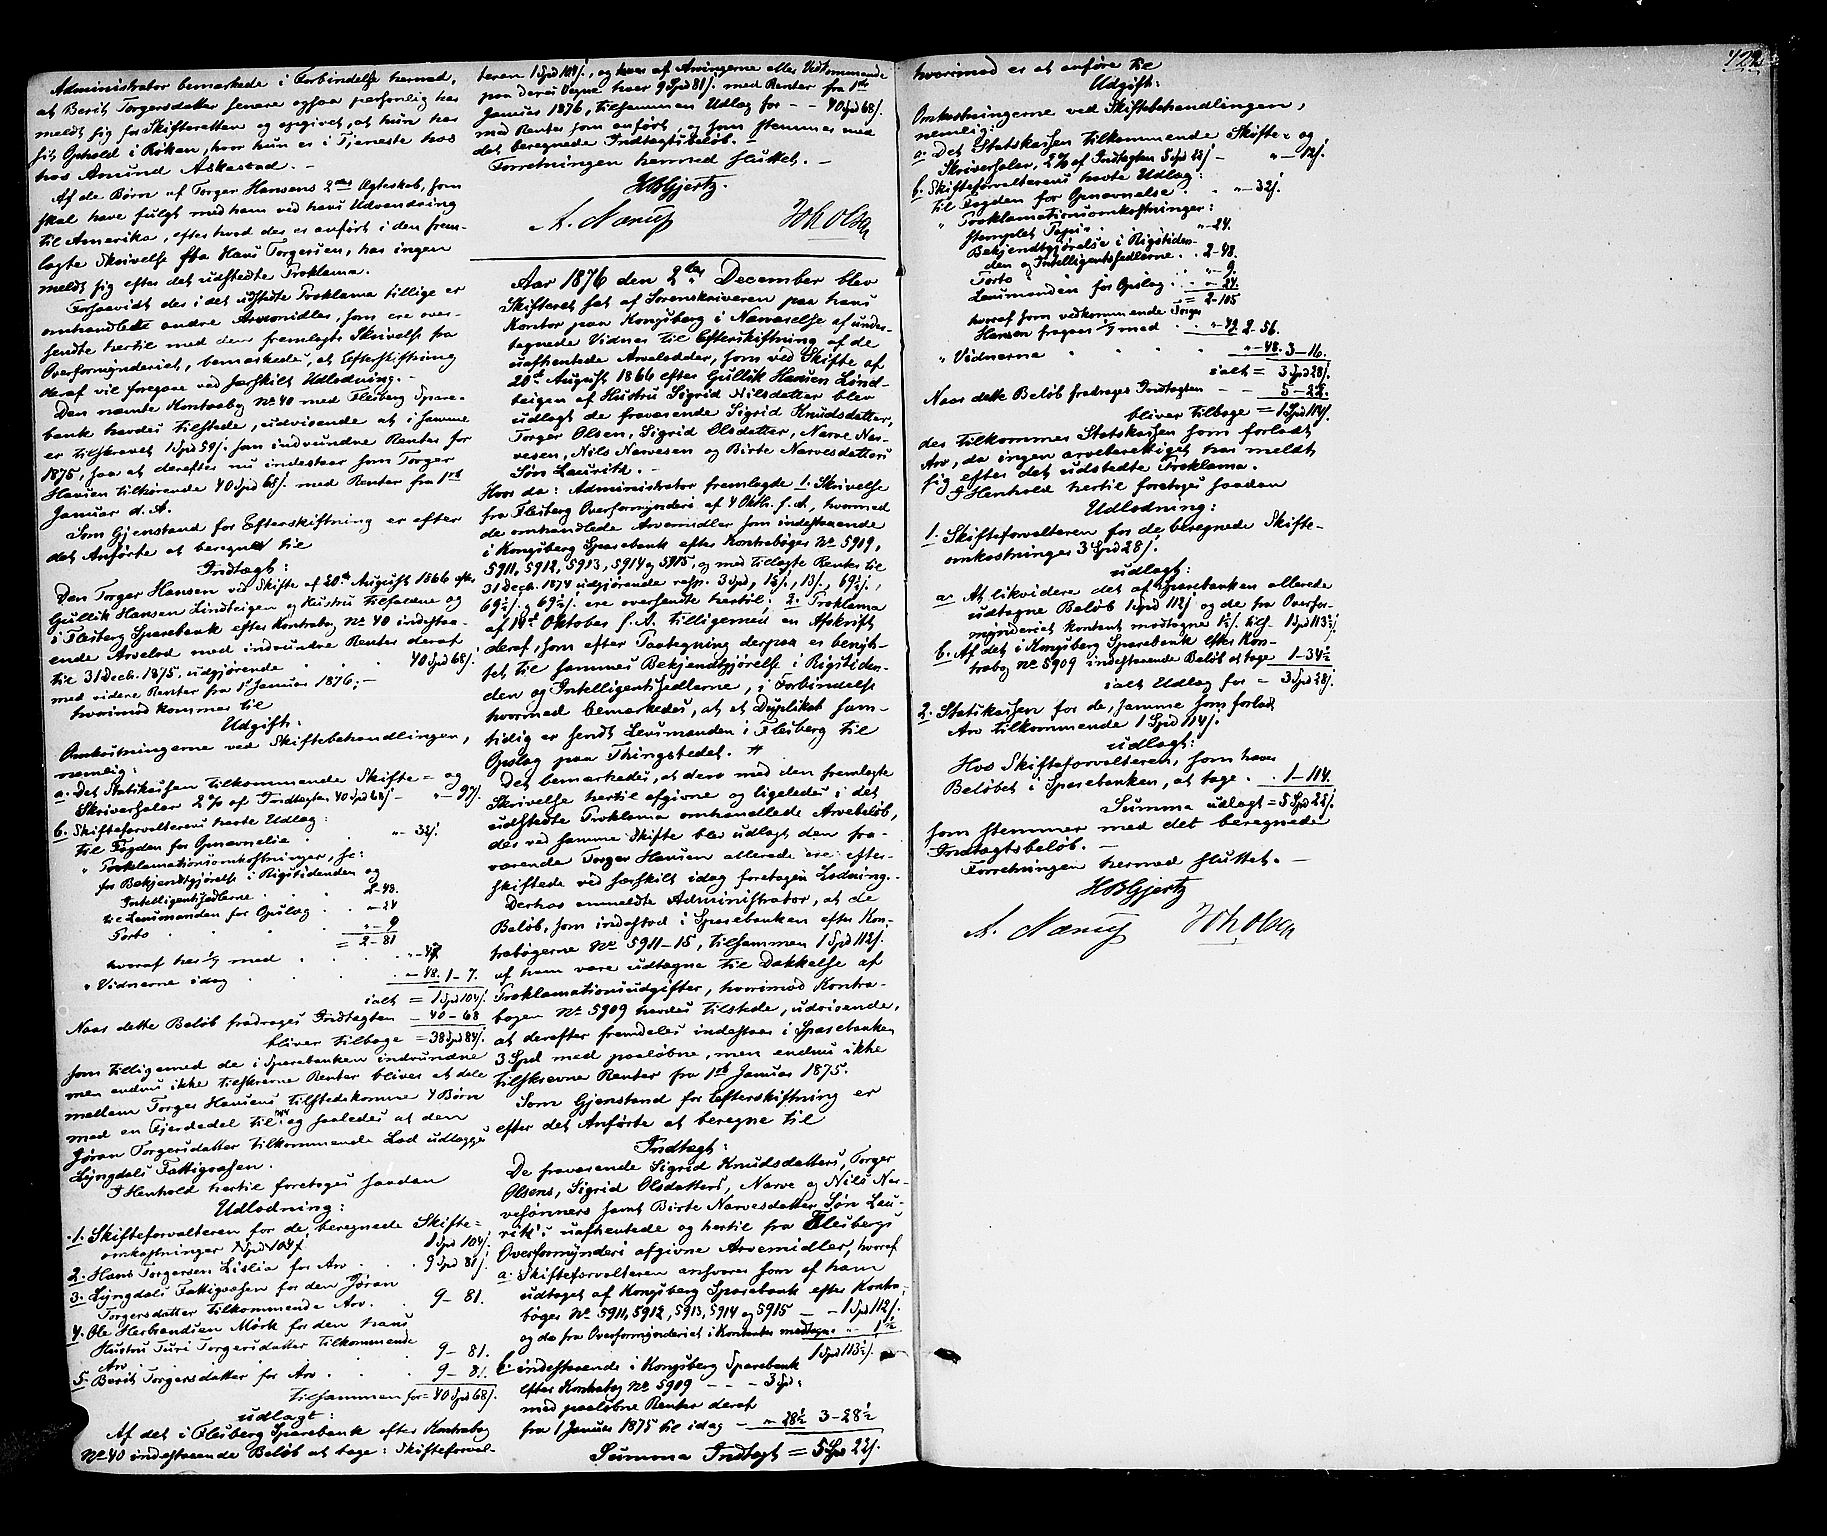 Administrator bemærkede i Forbindelse hermed,
at Berit Torgersdatter senere ogsaa personlig har
meldt sig for Skifteretten og opgivet, at hun har
sit Ophold i Røken, hvor hun er i Tjeneste hos
hos Amund Askestad. —
Af de Børn af Torger Hansens 2det Ægteskab, som
skal have fulgt med ham ved hans Udvandring
til Amerika, efter hvad der er anført i den frem-
lagte Skrivelse fra Hans Torgersen, har ingen
meldt sig efter det udstedte Proklama.
Forsaavidt der i det udstedte Proklama tillige er
omhandlede andre Arvemidler, som ere over-
sendte hertil med den fremlagte Skrivelse fra
Overformynderiet, bemærkedes, at Efterskiftning
deraf vil foregaa ved særskilt Udlodning. —
Den nævnte Kontrabog No 40 med Flesberg Spare-
bank havdes tilstede, udvisende at i samme
er tilskrevet 1 Spd 59 s. som indvundne Renter for
1875, saa at derefter nu indestaar som Torger
Hansen tilhørende 40 Spd 68 s. med Renter fra 1ste
Januar d. A.
Som Gjenstand for Efterskiftning er efter
det Anførte at beregnes til
Indtægt:
Den Torger Hansen ved Skifte af 20de August 1866 efter
Gullik Hansen Lindteigen og Hustru tilfaldne og
i Flesberg Sparebank efter Kontrabog No 40 indestaa-
ende Arvelod med indvundne Renter deraf
til 31 Decb. 1875, udgjørende . . . 40 Spd 68 s.
med videre Renter fra 1 Januar 1876; —
hvorimod kommer til
Udgift:
Omkostningerne ved Skiftebehandlingen,
nemlig:
a. Det Statskassen tilkommende Skifte- og
Skriversalær 2 % af Indtægten 40 Spd 68 s. — " — 97 s.
b. Skifteforvalterens havte Udlæg:
til Fogden for Opnævnelse . . " — 32 s.
" Proklamationsomkostninger,
for Bekjendtgjørelse i Rigstidenden og
Intelligentssedlerne . . 2-48.
til Lensmanden for Opslag . . " — 24
Porto . . . " — 9
= 2 — 81
hvoraf her 1/7 med . . . " — 47
" Vidnerne idag . . . " — 48. 1 — 7.
ialt = 1 Spd 104 s.
Naar dette Beløb fradrages Indtægten — 40 — 68
bliver tilbage = 38 Spd 84 s.
som tilligemed de i Sparebanken indvundne
men endnu ikke tilskrevne Renter bliver at dele
mellem Torger Hansens tilstedekomne 4 Børn
med en Fjerdedel til hver og saaledes at den
Jøran Torgersdatter tilkommende Lod udlægges
Lyngdals Fattigvæsen.
I Henhold hertil foretoges saadan
Udlodning:
1. Skifteforvalteren for de beregnede Skifte-
omkostninger 1 Spd 104 s. 1 Spd 104 s.
2. Hans Torgersen Lislia for Arv . . . 9 Spd 81 s.
3. Lyngdals Fattigvæsen for den Jøran
Torgersdatter tilkommende Arv. . 9 — 81.
4. Ole Herbrandsen Mørk for den hans
Hustru Turi Torgersdatter tilkommende
Arv . . . 9 — 81.
5. Berit Torgersdatter for Arv . . . 9 — 81.
tilsammen for = 40 Spd 68 s.
udlagt:
Af det i Flesberg Sparebank efter Kontrabog
No 40 indestaaende Beløb at tage: Skifteforval-
teren 1 Spd 104 s., og hver af Arvingerne eller Vedkommende
paa deres Vegne hver 9 Spd 81 s. med Renter fra 1ste
Januar 1876, tilsammen Udlæg for — — 40 Spd 68 s.
med Renter som anført, og som stemmer med
det beregnede Indtægtsbeløb. —
Forretningen hermed sluttet. —
HBGjertz.
A. Nærup Joh Olsen
Aar 1876 den 2den December blev
Skifteret sat af Sorenskriveren paa hans
Kontor paa Kongsberg i Nærværelse af under-
tegnede Vidner til Efterskiftning af de
uafhentede Arvelodder, som ved Skifte af
20de August 1866 efter Gullik Hansen Lind-
teigen og Hustru Sigrid Nilsdatter blev
udlagt de fraværende Sigrid Knudsdatter,
Torger Olsen, Sigrid Olsdatter, Narve Nar-
vesen, Nils Narvesen og Birte Narvesdatters
Søn Laurits. —
Hvor da: Administrator fremlagde 1. Skrivelse
fra Flesberg Overformynderi af 4 Oktb. f. A., hvormed
de omhandlede Arvemidler som indestaaende
i Kongsberg Sparebank efter Kontrabøger No 5909,
5911, 5912, 5913, 5914 og 5915, og med tillagte Renter til
31 Decb. 1874 udgjørende resp. 3 Spd, 15 s., 13 s., 69½ s.,
69½ s. og 69½ s. ere oversendte hertil; 2. Proklama
af 14de Oktober f. A. tilligemed en Afskrift
deraf, som efter Paategning derpaa er benyt-
tet til sammes Bekjendtgjørelse i Rigstiden-
den og Intelligentssedlerne, i Forbindelse
hvormed bemærkedes, at et Duplikat sam-
tidig er sendt Lensmanden i Flesberg til
Opslag paa Thingstedet. #
Det bemærkedes, at dere med den fremlagte
Skrivelse hertil afgivne og ligeledes i det
udstedte Proklama omhandlede Arvebeløb,
der ved samme Skifte blev udlagt den fra-
værende Torger Hansen allerede ere efter-
skiftede ved særskilt idag foretagen Lodning.
Derhos anmeldte Administrator, at de
Beløb, som indestod i Sparebanken efter Kon-
trabøgerne No 5911-15, tilsammen 1 Spd 112 s.
af ham vare udtagne til Dækkelse af
Proklamationsudgifter, hvorimod Kontra-
bogen No 5909 havdes tilstede, udvisende,
at derefter fremdeles indestaar i Sparebanken
3 Spd med paaløbne, men endnu ikke
tilskrevne Renter fra 1ste Januar 1875.
Som Gjenstand for Efterskiftning er
efter det Anførte at beregne til
Indtægt:
De fraværende Sigrid Knudsdatters, Torger
Olsens, Sigrid Olsdatters, Narve og Nils Nar-
vesønners samt Birte Narvesdatters Søn Lau-
rits's uafhentede og hertil fra Flesbergs
Overformynderi afgivne Arvemidler, hvoraf
a. Skifteforvalteren ansvarer som af ham
udtaget af Kongsberg Sparebank efter Kontra-
bøger No 5911, 5912, 5913, 5914 og 5915 — — 1 Spd 112 s.
og da fra Overformynderiet i Kontanter modtagne " — 1½
1 Spd 113½ s.
b. indestaaende i Kongsberg Sparebank
efter Kontrabog No 5909 — — — 3 Spd "
med paaløbne Renter deraf
fra 1 Januar 1875 til idag — " 28½ 3 — 28½
Summa Indtægt = 5 Spd 22 s.
422
hvorimod er at anføre til
Udgift:
Omkostningerne ved Skiftebehandlingen,
nemlig:
a. Det Statskassen tilkommende Skifte- og
Skriversalær, 2 % af Indtægten 5 Spd 22 s. — " — 12 s.
b. Skifteforvalterens havte Udlæg:
til Fogden for Opnævnelse . . " — 32 s.
" Proklamationsomkostninger:
stemplet Papir . . " — 24.
Bekjendtgjørelse i Rigstiden-
den og Intelligentssedlerne . . 2-48.
Porto . . " — 9.
Lensmanden for Opslag . . " — 24
= 2-105
hvoraf som vedkommende Torger
Hansen fragaar 1/7 med . . " — 49 2-56.
" Vidnerne . . . " — 48. 3 — 16.
ialt = 3 Spd 28 s.
Naar dette Beløb fradrages Indtægten — — 5 — 22.
bliver tilbage = 1 Spd 114 s.
der tilkommer Statskassen som forladt
Arv, da ingen arveberettiget har meldt
sig efter det udstedte Proklama.
I Henhold hertil foretoges saadan
Udlodning:
1. Skifteforvalteren for de beregnede Skifte-
omkostninger 3 Spd 28 s.
udlagt:
a. At likvidere det af Sparebanken allerede
udtagne Beløb 1 Spd 112 s. og de fra Overfor-
mynderiet kontant modtagne 1½ s. tils. 1 Spd 113½ s.
b. Af det i Kongsberg Sparebank efter Kon-
trabog No 5909 indestaaende Beløb at tage 1 — 34½
ialt Udlæg for = 3 Spd 28 s.
2. Statskassen for de, samme som forladt
Arv tilkommende 1 Spd 114 s.
udlagt:
Hos Skifteforvalteren, som hæver
Beløbet i Sparebanken, at tage . . 1 — 114.
Summa udlagt = 5 Spd 22 s.
som stemmer med det beregnede
Indtægtsbeløb. —
Forretningen hermed sluttet. —
HBGjertz
A. Nærup Joh Olsen